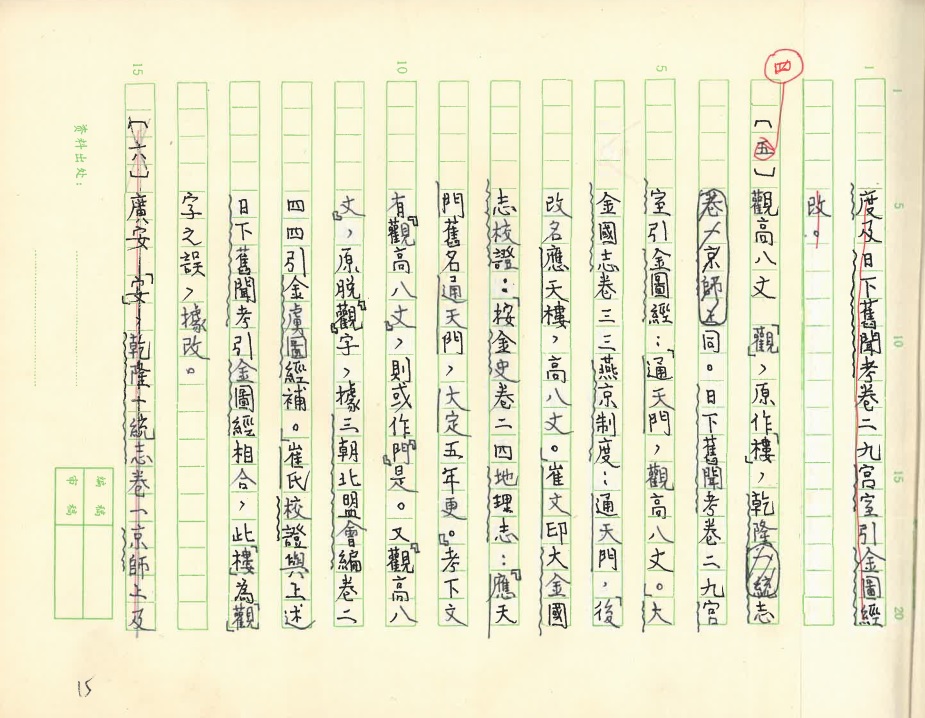 度及日下舊聞考卷二九宮室引金圖經
改。
四
〔五〕觀高八文 「觀」,原作「樓」,乾隆一統志
卷一京師上同。日下舊聞考卷二九宮
室引金圖經:「通天門,觀高八丈。」大
金國志卷三三燕京制度:「通天門,後
改名應天樓,高八丈。」崔文印大金國
志校證:「按金史卷二四地理志:『應天
門舊名通天門,大定五年更。』考下文
有『觀高八丈』,則或作『門』是。又『觀高八
丈』,原脱『觀』字,據三朝北盟會編卷二
四四引金虜圖經補。」崔氏校證與上述
日下舊聞考引金圖經相合,此「樓」為「觀」
字之誤,據改。
〔六〕廣安 「安」,乾隆一統志卷一京師上及
1
5
10
15
1
5
10
15
20
资料出处:
编稿
审稿
15